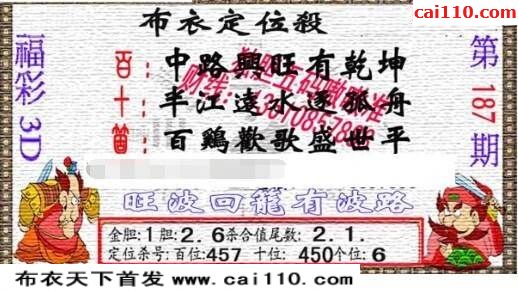 cai110.com
布衣定位殺
福彩3D
第187期
百:中路興旺有乾坤
十:半江遠水逐孤舟
個:百鷄歡歌盛世平
旺波回龍有波路
金胆:1胆:2.6杀合值尾数:2.1.
定位杀号:百位:457 十位:450个位:6
布衣天下首发 www.cai110.com